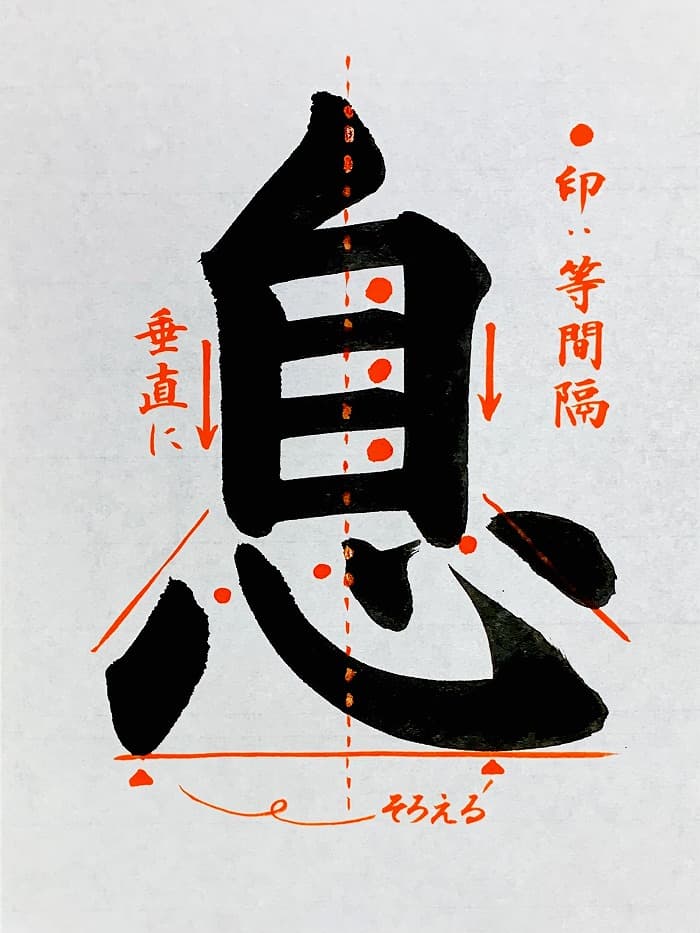 息
●印は等間隔
垂直に
そろえる